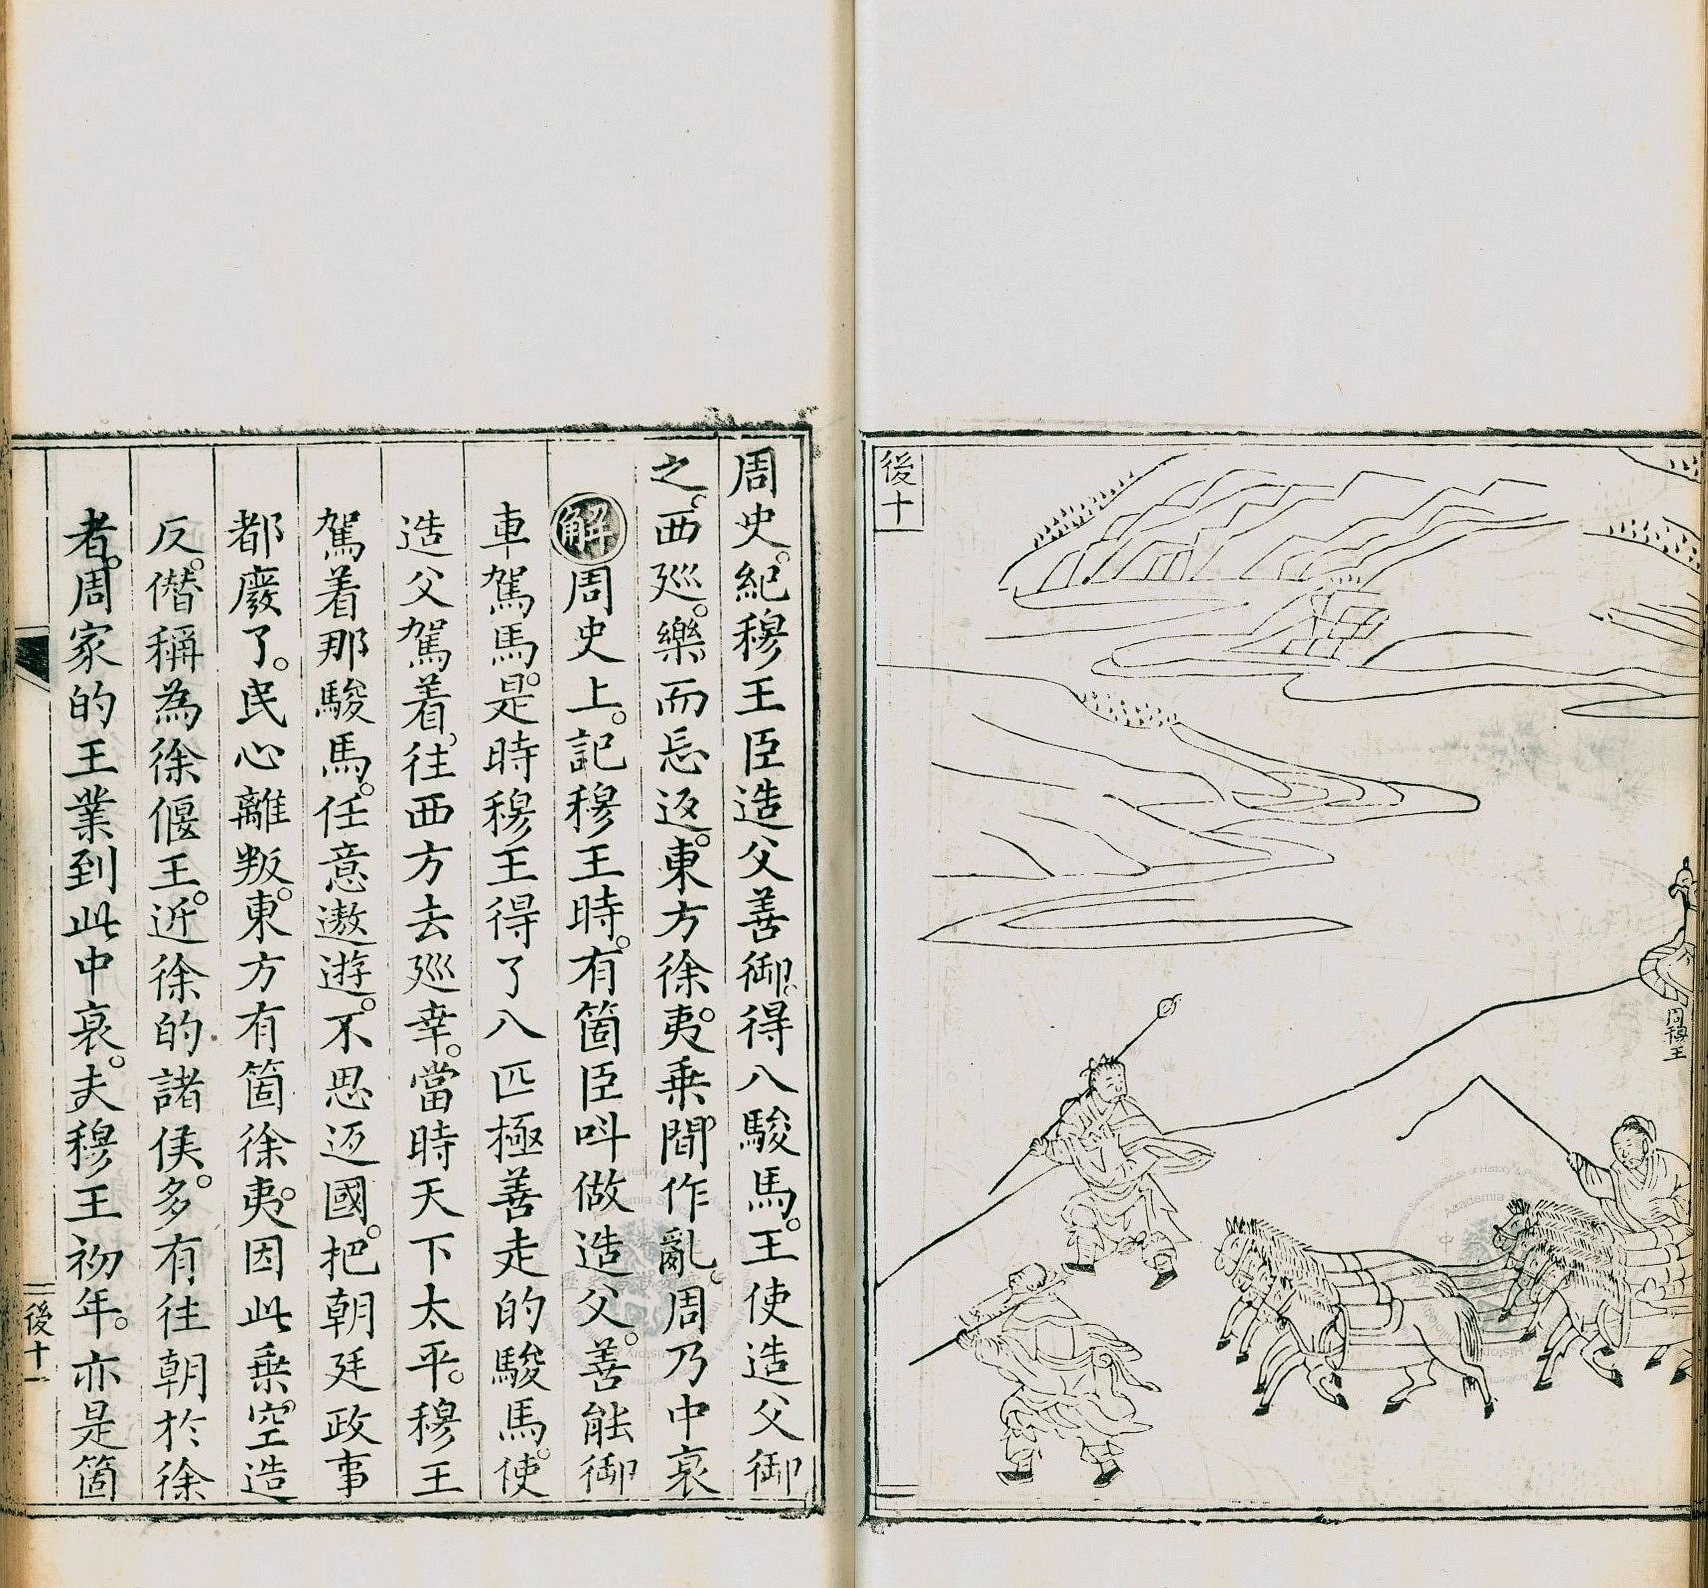 後十
周穆王
周史。紀穆王臣造父善御、得八駿馬。王使造父御
之、西廵。樂而忘返。東方徐夷。乗間作亂。周乃中衰
解周史上。記穆王時。有箇臣呌做造父。善能御
車駕馬。是時穆王得了八匹極善走的駿馬。使
造父駕着、往西方去廵幸。當時天下太平。穆王
駕着那駿馬。任意遨遊。不思迈國。把朝廷政事
都廢了。民心離叛。東方有箇徐夷。因此乗空造
反。僣稱為徐偃王。近徐的諸侯。多有往朝於徐
者。周家的王業到此中衰。夫穆王初年。亦是箇
後十一